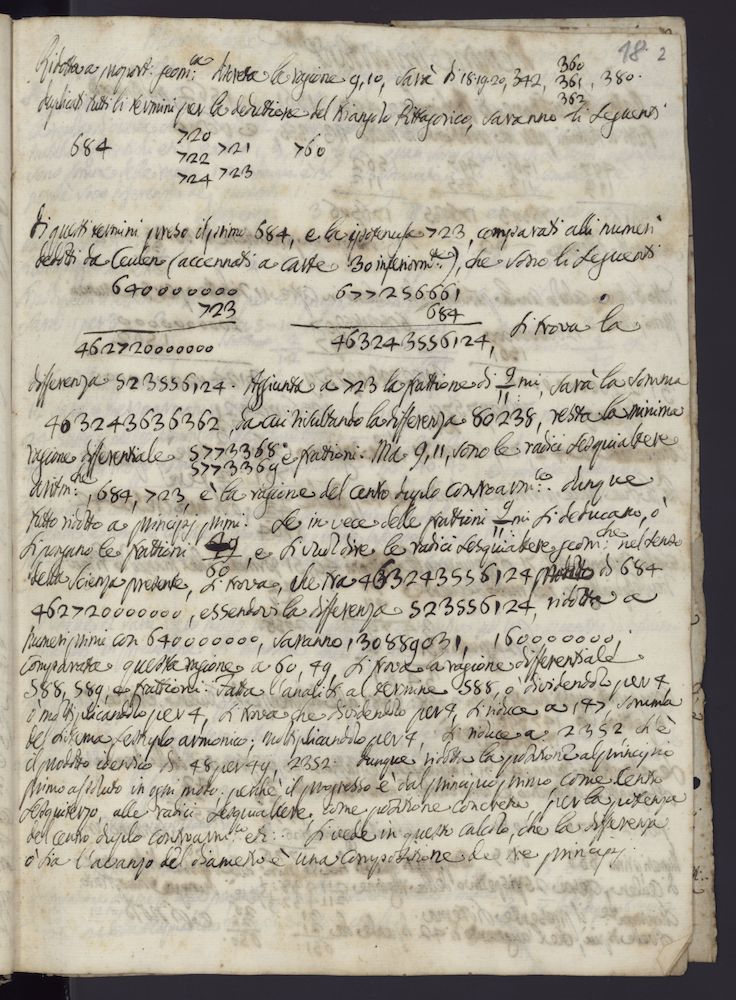 18. 2
Ridotta a proport: geom:ca discreta la ragione 9, 10, sarà di 18. 19. 20, 342, 360 361 362, 380.
duplicati tutti li termini per la deduttione del triangolo Pittagorico, saranno li seguenti
684 720 722 724 721 723 760
di questi termini preso il primo 684, e la ipotenusa 723, comparati alli numeri
dedotti da Ceulen (accennati a carte 30 inferiormte), che sono li seguenti
640000000 677256661
723 684
462720000000 463243556124, si trova la
differenza 523556124. Aggiunta a 723 la frattione di 9/11 mi, sarà la somma
463243636362, da cui risultando la differenza 80238, resta la minima
ragione differentiale 5773368 5773369 e frattioni. Ma 9, 11, sono le radici sesquialtere
aritm:che, 684, 723, è la ragione del cento duplo controarm:co. dunque
tutto ridotto a principj primi. Se in vece delle frattioni 9/11 mi si deducano, ò
si pongano le frattioni 49/60, e si vuol dire le radici sesquialtere geom:che nel senso
della scienza presente, si trova, che tra 463243556124 di 684
462720000000, essendovi la differenza 523556124, ridotta a
numeri primi con 640000000, saranno 130889031, 160000000;
comparata questa ragione a 60, 49, si trova a ragione differentiale
588, 589, e frattioni. Fatta l'analisi al termine 588, ò dividendolo per 4,
ò moltiplicandolo per 4, si trova che dividendolo per 4, si riduce a 147, somma
del sistema sestuplo armonico; moltiplicandolo per 4, si riduce a 2352 ch'è
il prodotto identico di 48 per 49, 2352. dunque ridotta la positione al principio
primo assoluto in ogni modo. perchè il progresso è dal principio primo come cento
sesquiterzo, alle radici sesquialtere, come positione concreta per la potenza
del cento duplo controarm:co etc: Si vede in questo calcolo, che la differenza
ò sia l'avanzo del diametro è una compositione de tre principj.